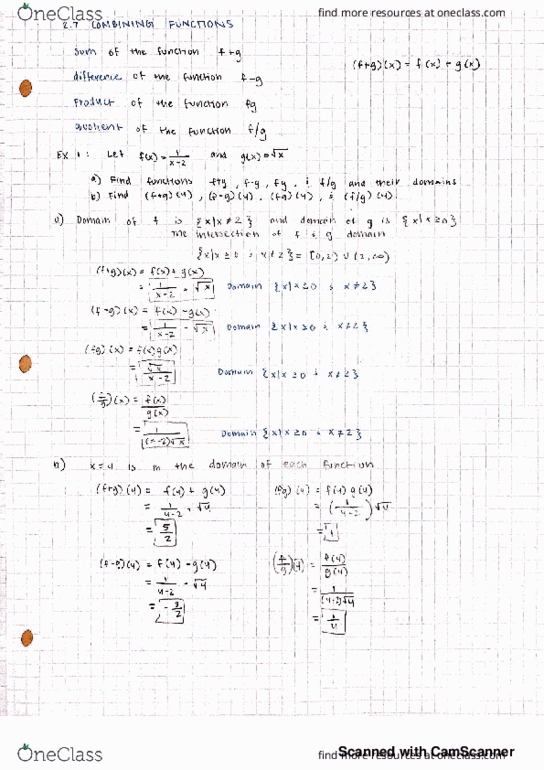 OneClass
find more resources at oneclass.com
2.7 COMBINING FUNCTIONS
sum of the function f+g
(f+g)(x) = f(x) + g(x)
difference of the function f-g
product of the function fg
quotient of the function f/g
EX 1: Let f(x) = 1/x-2 and g(x) = √x
a) Find functions f+g, f-g, fg, & f/g and their domains
b) Find (f+g)(4), (f-g)(4), (fg)(4), & (f/g)(4)
a) Domain of f is {x|x≠2} and domain of g is {x|x≥0}
The intersection of f & g domain
{x|x≥0 & x≠2} = [0,2) ∪ (2,∞)
(f+g)(x) = f(x) + g(x)
= 1/x-2 + √x Domain {x|x≥0 & x≠2}
(f-g)(x) = f(x) - g(x)
= 1/x-2 - √x Domain {x|x≥0 & x≠2}
(fg)(x) = f(x)g(x)
= √x/x-2 Domain {x|x≥0 & x≠2}
(f/g)(x) = f(x)/g(x)
= 1/(x-2)√x Domain {x|x≥0 & x≠2}
b) x=4 is in the domain of each function
(f+g)(4) = f(4) + g(4)
= 1/4-2 + √4
= 5/2
(fg)(4) = f(4)g(4)
= (1/4-2)√4
= 1
(f-g)(4) = f(4) - g(4)
= 1/4-2 - √4
= -3/2
(f/g)(4) = f(4)/g(4)
= 1/(4-2)√4
= 1/4
Scanned with CamScanner
OneClass
find more resources at oneclass.com